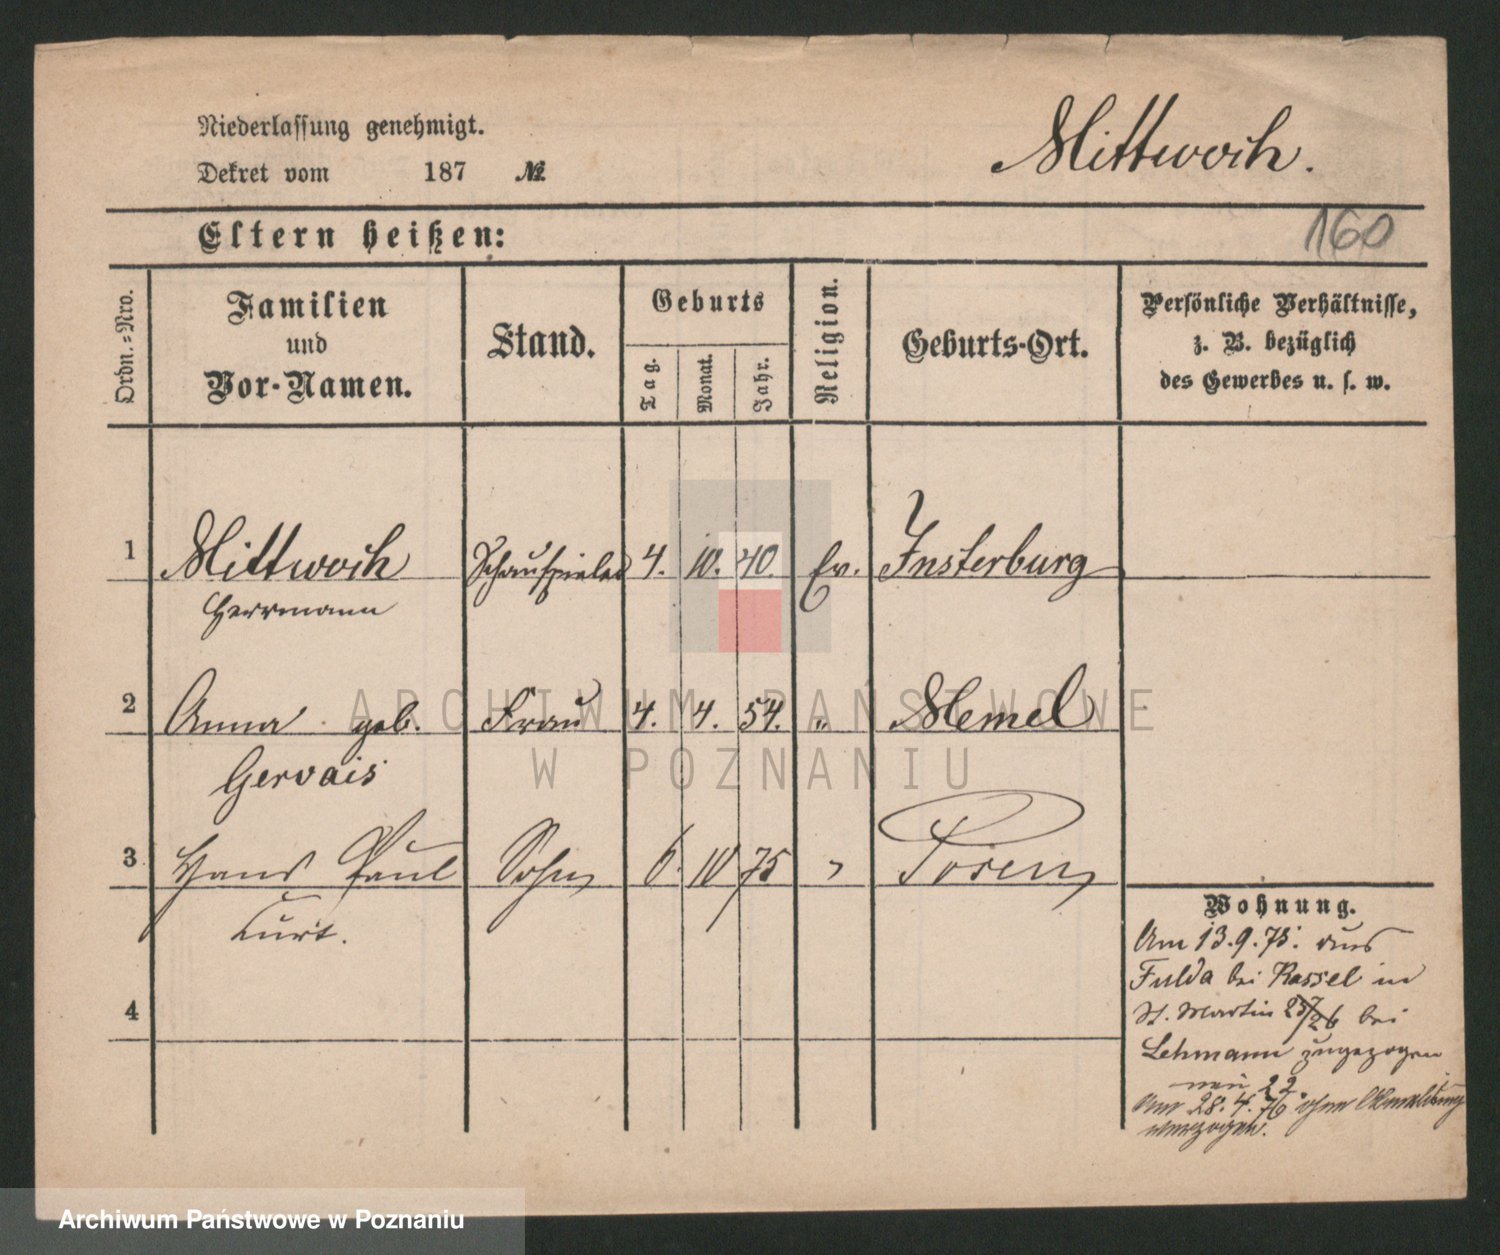 Niederlassung genehmigt.
Dekret vom 187 №
Mittwoch.
160
Eltern heißen:
Ordn.=Nro.
Familien
und
Vor-Namen.
Stand.
Geburts
Tag.
Monat.
Jahr.
Religion.
Geburts-Ort.
Persönliche Verhältnisse,
z. B. bezüglich
des Gewerbes u. s. w.
1 Mittwoch Schauspieler 4. 10. 40. Ev. Insterburg
Herrmann
2 Anna geb. Frau 4. 4. 54. " Memel
Gervais
3 Hans Paul Sohn 6. 10 75 " Posen
Curt.
4
Wohnung.
Am 13.9.75. aus
Fulda bei Kassel in
St. Martin 25/26 bei
Lehmann zugezogen
neu 22
Am 28.4.76 ohne Abmeldung
verzogen.
ARCHIWUM PAŃSTWOWE
W POZNANIU
Archiwum Państwowe w Poznaniu